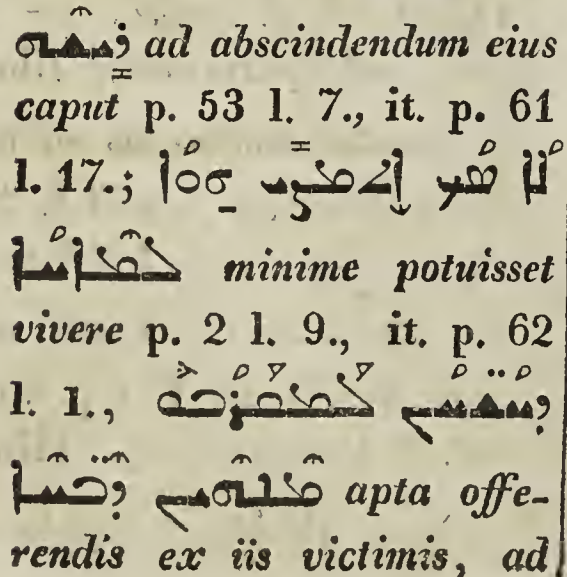 ܪܝܼܫܗ ad abscindendum eius
caput p. 53 l. 7., it. p. 61
l. 17.; ܠܳܐ ܣܳܟ ܐܬܡܨܝ ܗ̱ܘܳܐ
ܠܡܶܐܚܳܐ minime potuisset
vivere p. 2 l. 9., it. p. 62
l. 1., ܕܚܳܫ̈ܚܳܢ ܠܰܡܩܰܪܳܒܽܘ
ܡܶܢܗܶܝܢ ܕܶܒܚ̈ܶܐ apta offe-
rendis ex iis victimis, ad